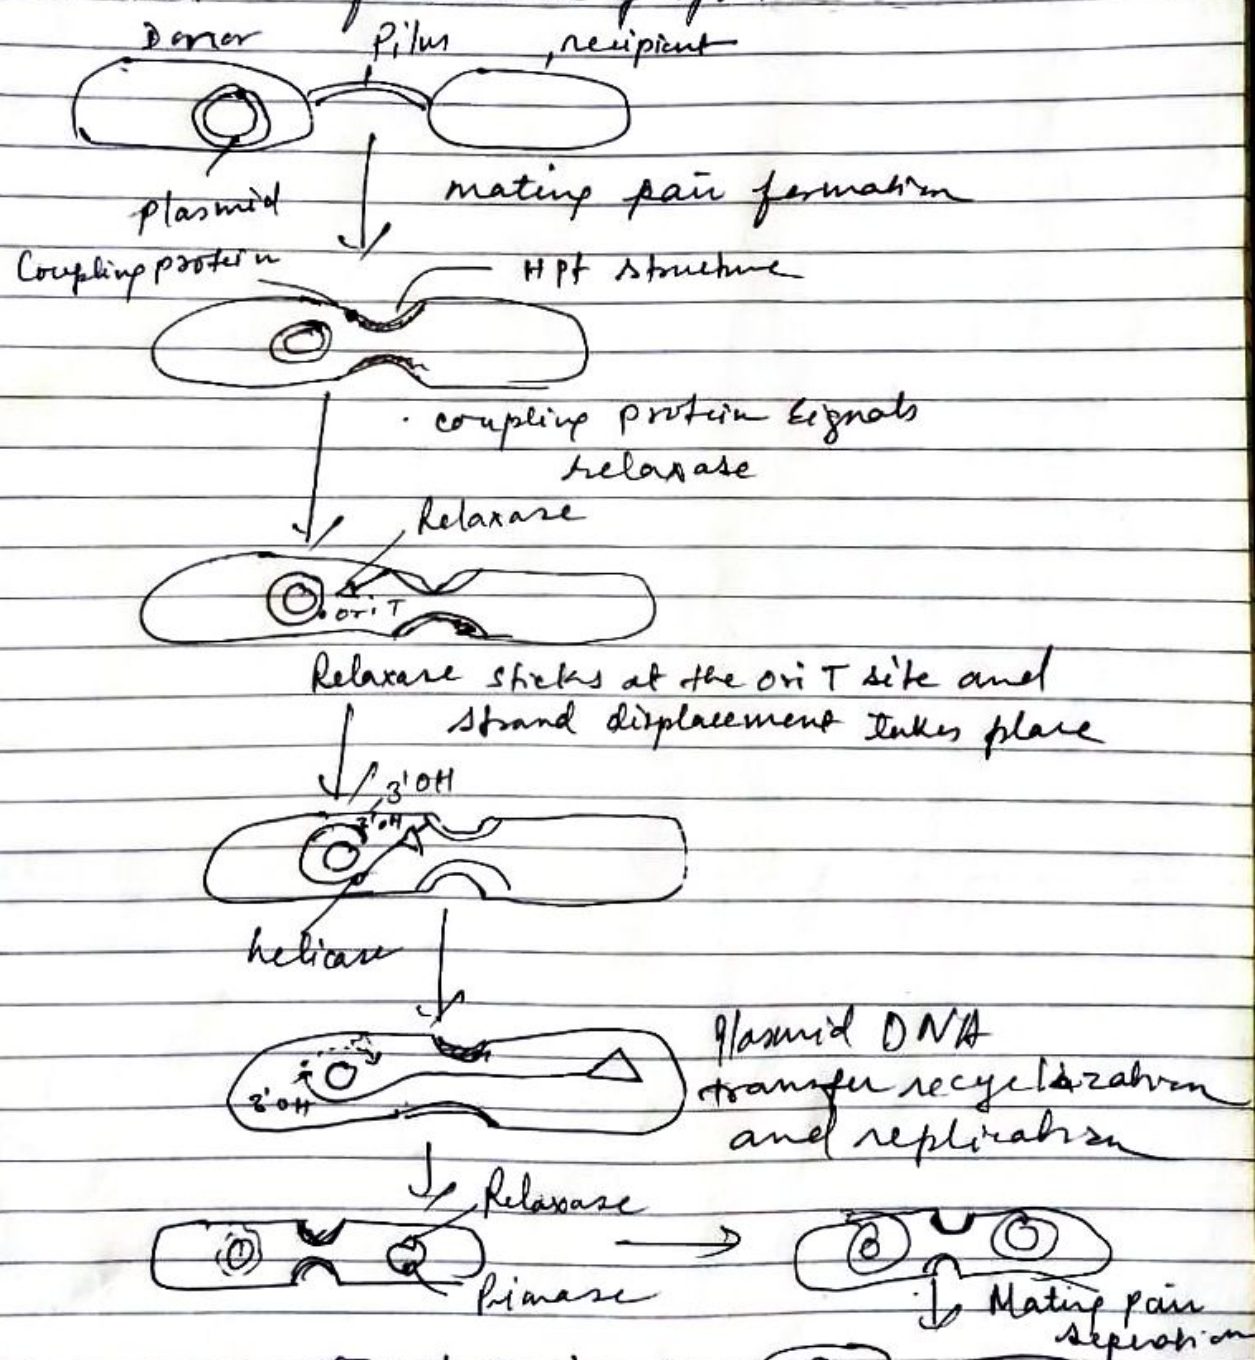 Donor Pilus recipient
plasmid
mating pair formation
Coupling protein
Hpf structure
coupling protein signals
relaxase
Relaxase
ori T
Relaxase sticks at the ori T site and
strand displacement takes place
3'OH
3'OH
helicase
3'OH
Plasmid DNA
transfer recyclization
and replication
Relaxase
Primase
Mating pair
seperation